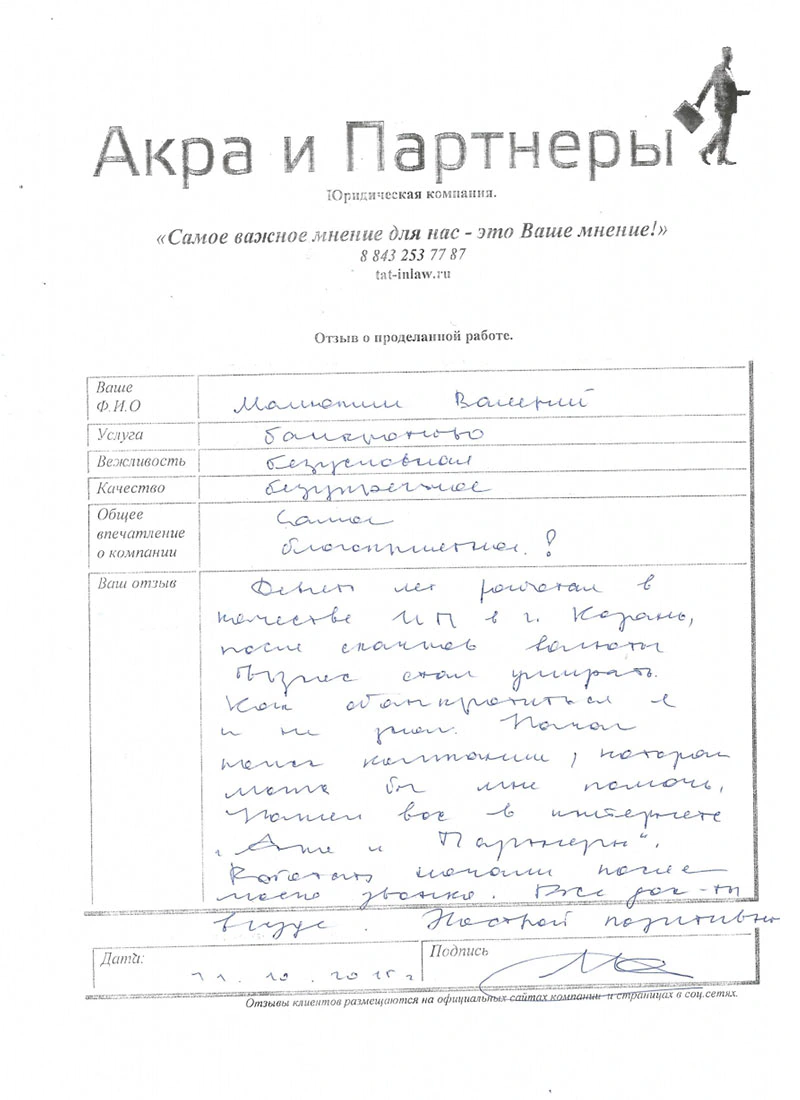 Акра и Партнеры
Юридическая компания.
«Самое важное мнение для нас - это Ваше мнение!»
8 843 253 77 87
tat-inlaw.ru
Отзыв о проделанной работе.
Ваше
Ф.И.О
Валерий
Услуга
банкротство
Вежливость
безусловная
Качество
безупречное
Общее
впечатление
о компании
Самое
благоприятное. !
Ваш отзыв
Девять лет работал в
качестве ИП в г. Казань,
после скачков валюты
бизнес стал умирать.
Как обанкротиться я
и не знал. Начал
поиск компании, которая
могла бы мне помочь,
Нашел вас в интернете
и Партнеры".
Работать начали после
моего звонка. Все док-ты
в суде. Настрой позитивный
Дата:
10. 2015 г
Подпись
Отзывы клиентов размещаются на официальных сайтах компании и страницах в соц.сетях.